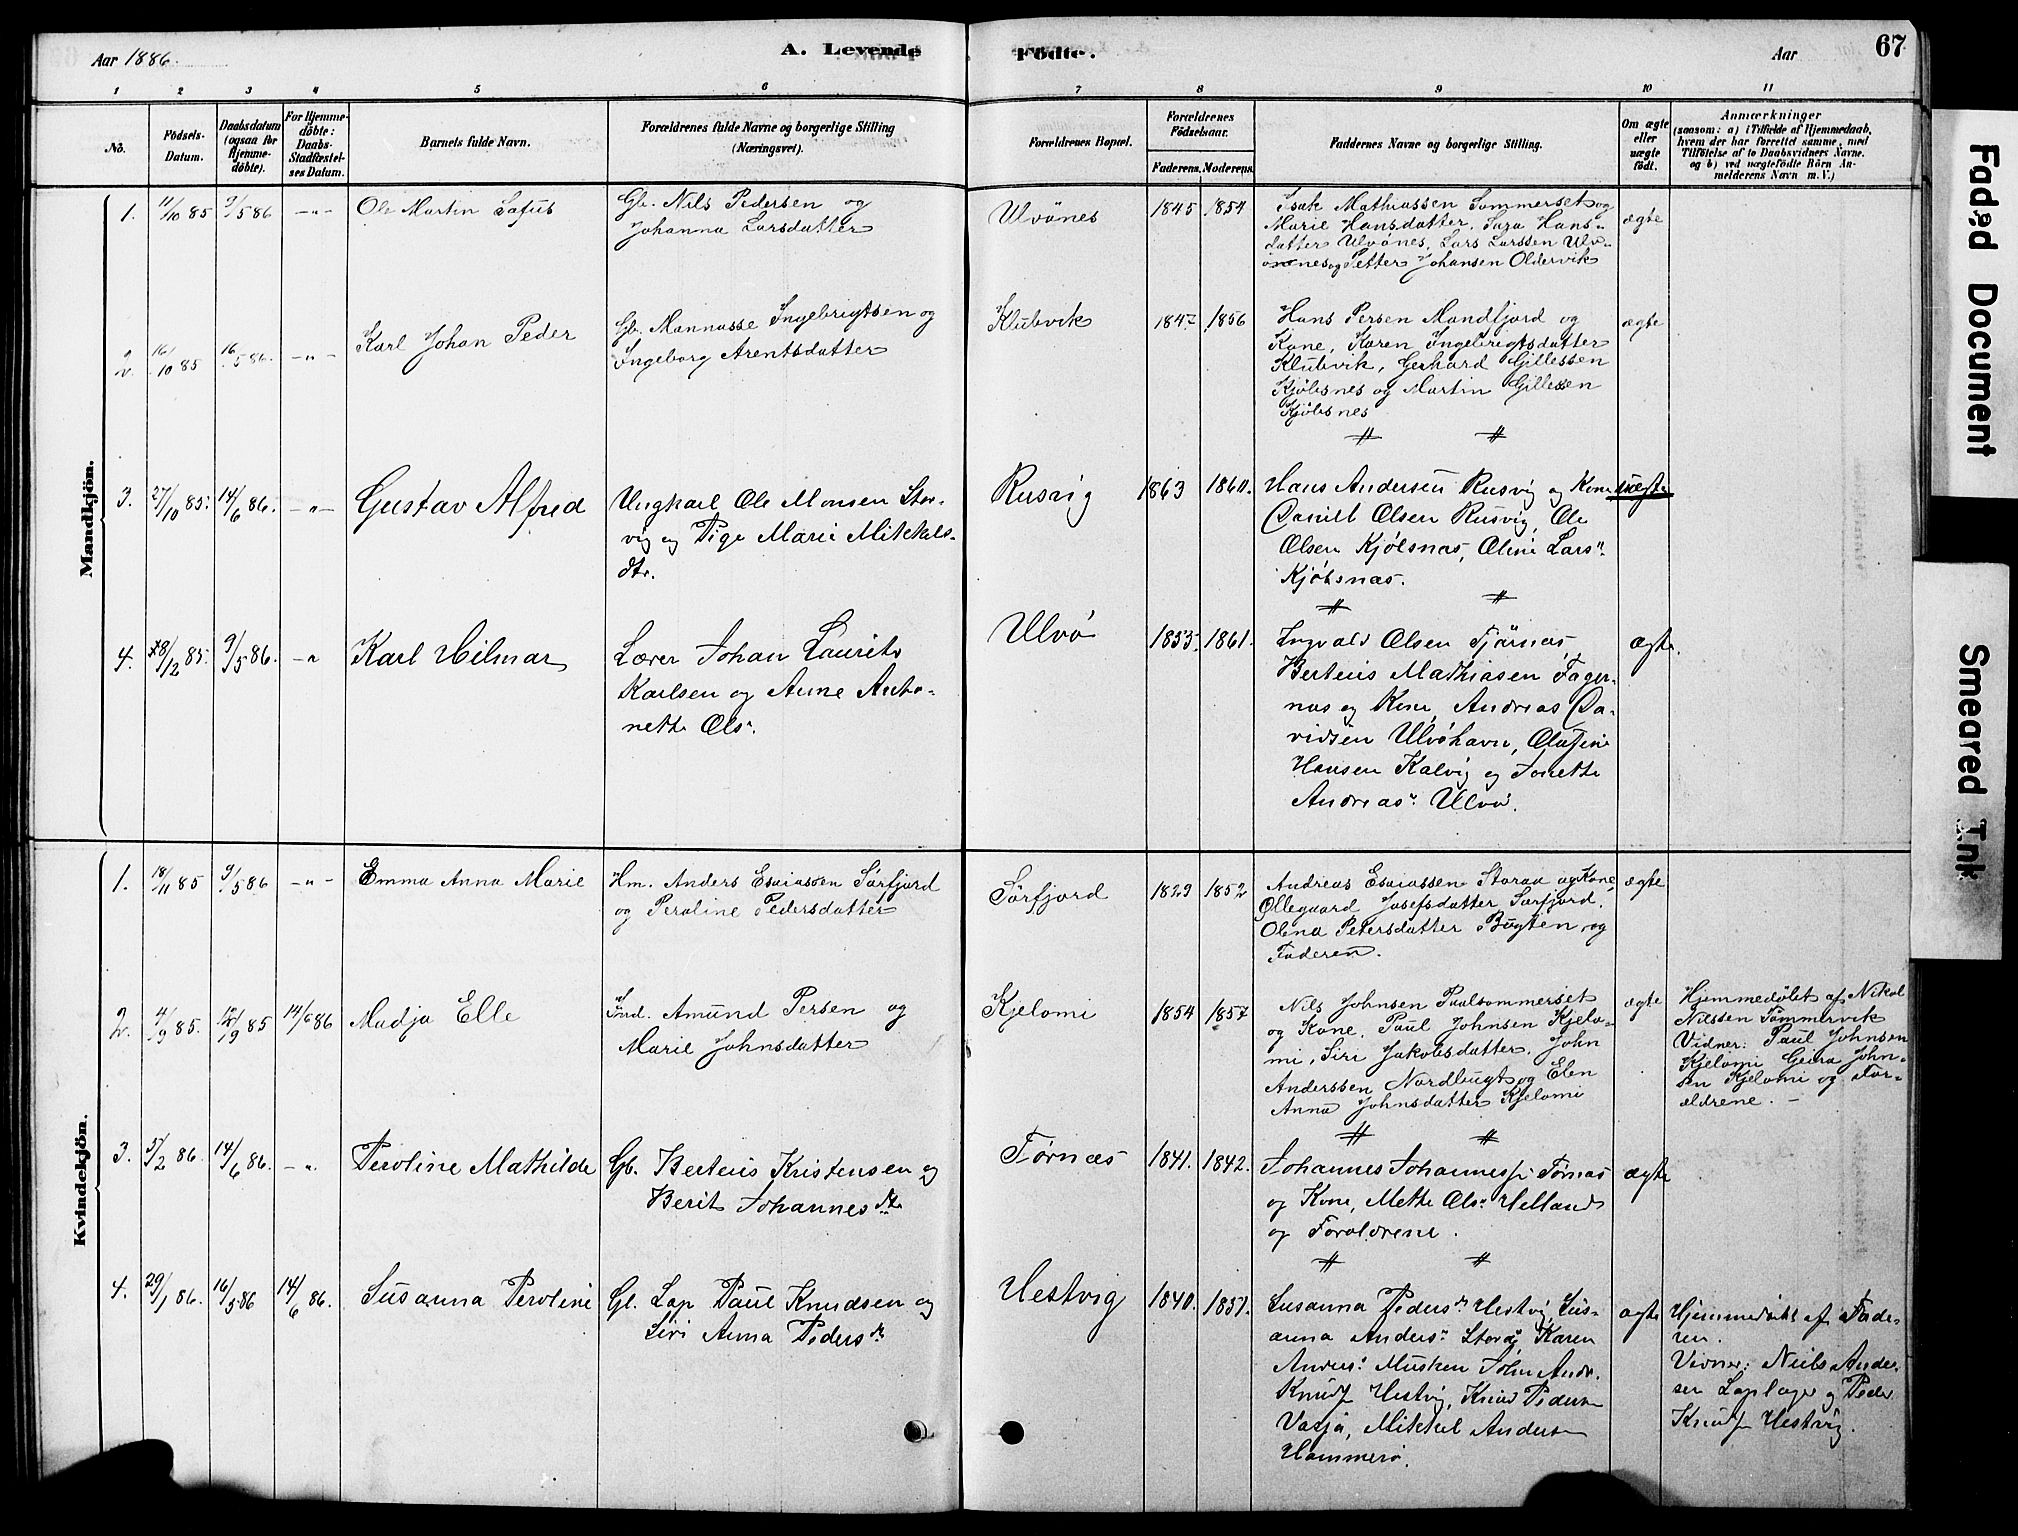 Aar 1886.
A. Levende
Födte.
Aar
67
1
2
3
4
5
6
7
8
9
10
11
No.
Födsels-
Datum.
Daabsdatum
(ogsaa for
Hjemme-
døbte).
For Hjemme-
døbte:
Daabs-
Stadfæstel-
ses Datum.
Barnets fulde Navn.
Forældrenes fulde Navne og borgerlige Stilling
(Næringsvei).
Forældrenes Bopæl.
Forældrenes
Födselsaar.
Faderens.
Moderens.
Faddernes Navne og borgerlige Stilling.
Om ægte
eller
uægte
født.
Anmærkninger
(saasom: a) i Tilfælde af Hjemmedaab,
hvem der har forrettet samme, med
Tilföielse af to Daabsvidners Navne.
og b) ved uægtefödte Börn An-
melderens Navn m. V.)
Mandkjön.
1.
11/10 85
9/5 86
-"-
Ole Martin Safus
Gb. Nils Pedersen og
Johanna Larsdatter
Ulvönes
1845
1854
Isak Mathiassen Sommerset og
Marie Hansdatter, Sara Hans-
datter Ulvönes, Lars Larssen Ulv-
önes og Petter Johansen Oldervik
ægte
2.
16/10 85
16/5 86.
-"-
Karl Johan Peder
Gb. Mannasse Ingebrigtsen og
Ingeborg Arentsdatter
Klubvik
1847
1856
Hans Persen Mandfjord og
Kone, Karen Ingebrigtsdatter
Klubvik, Gerhard Gillessen
Kjölsnes og Martin Gillessen
Kjölsnes
ægte
3.
27/10 85.
14/6 86.
-"-
Gustav Alfred
Ungkarl Ole Monsen Stor-
vig og Pige Marie Mikkels-
dtr.
Rusvig
1863
1860.
Hans Andersen Rusvig og Kone
Daniel Olsen Rusvig, Ole
Olsen Kjölsnæs, Oline Lars"
Kjölsnæs.
uægte
4.
28/12 85.
9/5 86.
-"
Karl Hilmar
Lærer Johan Laurits
Karlsen og Anne Anto-
nette Ols".
Ulvö
1853.
1861.
Ingvald Olsen Tjärnæs,
Berteus Mathiasen Fager-
næs og Kone, Andreas Da-
vidsen Ulvöhavn, Olufine
Hansen Kalvig og Jonette
Andreas" Ulvö.
ægte.
Kvindekjön.
1.
18/11 85
9/5 86
-"-
Emma Anna Marie
Hm. Anders Esaiassen Sörfjord
og Peroline Pedersdatter
Sörfjord
1829
1852
Andreas Esaiassen Storaa og Kone,
Ollegaard Josefsdatter Sörfjord.
Olena Petersdatter Bugten og
Faderen.
ægte
2.
4/9 85.
/9 85
14/6 86
Madja Elle
Ind. Amund Persen og
Marie Johnsdatter
Kjelomi
1854
1857
Nils Johnsen Paulsommerset
og Kone, Paul Johnsen Kjelo-
mi, Siri Jakobsdatter, John
Anderssen Nordbugt og Elen
Anna Johnsdatter Kjelomi
ægte
Hjemmedöbt af Nikol
Nilssen Tömmervik
Vidner: Paul Johnsen
Kjelomi Geira John-
sen Kjelomi og For-
ældrene.-
3.
5/2 86.
14/6 86.
-"
Peroline Mathilde
Gb. Berteus Kristensen og
Berit Johannes dtr
Tørnæs
1841.
1842.
Johannes Johannes Tørnæs
og Kone, Mette Ols" Helland
og Forældrene.
ægte
4.
29/1 86.
16/5 86
14/6 86.
Susanna Peroline
Gl. Lap Paul Knudsen og
Siri Anna Peders dr
Hestvig
1840.
1851.
Susanna Peders dr Hestvig, Sus-
anna Anders" Storå, Karen
Anders" Musken John Andr.
Knuds Hestvig, Knud Peders
Vasja, Mikkel Anders
Hammerø.
ægte
Hjemmedöbt af Fade-
ren.
Vidner: Niels Ander-
sen Laplæger og Peder
Knuds Hestvig.
Faded Document
Smeared Ink